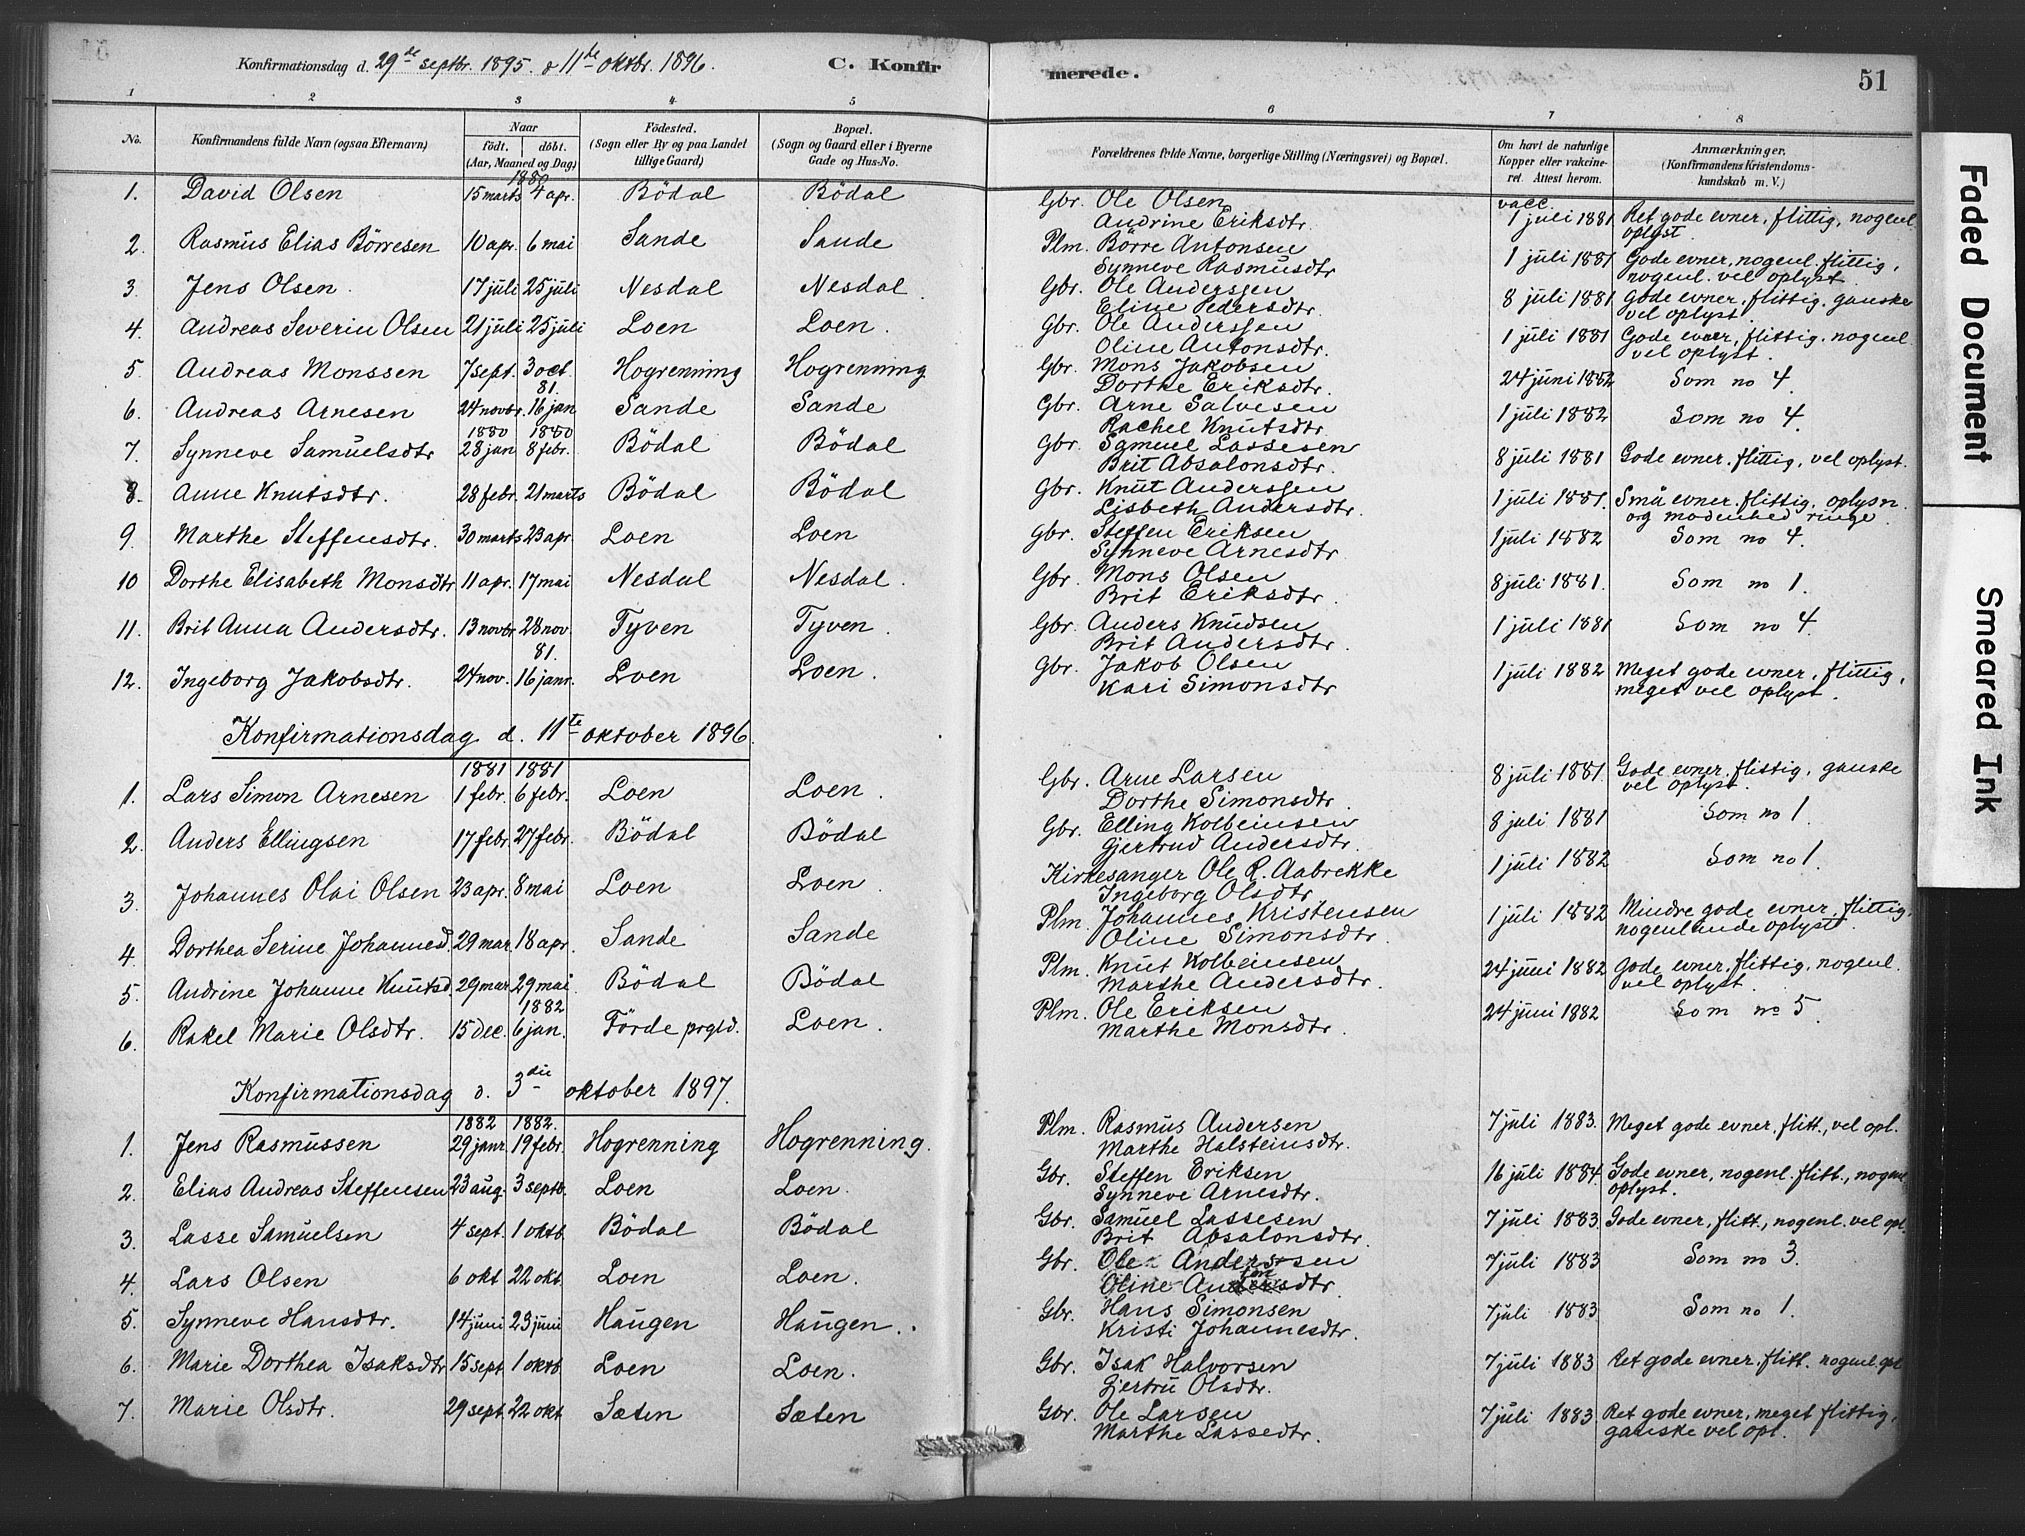 Konfirmationsdag d. 29de septbr. 1895. & 11te oktbr. 1896. C. Konfirmerede. 51
1 2 3 4 5 6 7 8
No. Konfirmandens fulde Navn (ogsaa Efternavn) Naar födt. döbt. (Aar, Maaned og Dag) Födested. (Sogn eller By og paa Landet tillige Gaard) Bopæl. (Sogn og Gaard eller i Byerne Gade og Hus-No. Forældrenes fulde Navne, borgerlige Stilling (Næringsvei) og Bopæl. Om havt de naturlige Kopper eller vakcineret. Attest herom. Anmærkninger, (Konfirmandens Kristendomskundskab m. V.)
1880 vacc.
1. David Olsen 15 marts 4 apr. Bödal Bödal Gbr. Ole Olsen 1 juli 1881 Ret gode evner, flittig, nogenl.
Andrine Eriksdtr. oplyst.
2. Rasmus Elias Börresen 10 apr. 6 mai Sande Sande Plm. Börre Antonsen 1 juli 1881 Gode evner, nogenl. flittig,
Synneve Rasmusdtr nogenl. vel oplyst.
3. Jens Olsen. 17 juli 25 juli Nesdal Nesdal. Gbr. Ole Anderssen 8 juli 1881 Gode evner, flittig, ganske
Eline Pedersdtr. vel oplyst.
4. Andreas Severin Olsen 21 juli 25 juli Loen Loen. Gbr. Ole Anderssen 1 juli 1881 Gode evner, flittig, nogenl
Oline Antonsdtr. vel oplyst.
5. Andreas Monssen 7 sept. 3 oct. Hogrenning Hogrenning Gbr. Mons Jakobsen 24 juni 1882 Som no 4.
81. Dorthe Eriksdtr.
6. Andreas Arnesen 24 novbr. 16 jan Sande Sande Gbr. Arne Salvesen 1 juli 1882 Som no 4.
1880 1880 Rachel Knutsdtr.
7. Synneve Samuelsdtr 28 jan 8 febr. Bödal Bödal Gbr. Samuel Lassesen 8 juli 1881 Gode evner, flittig, vel oplyst.
Brit Absalonsdtr.
8. Anne Knutsdtr. 28 febr. 21 marts Bödal Bödal Gbr. Knut Anderssen 1 juli 1881. Små evner, flittig, oplysn.
Lisbeth Andersdtr. og modenhed ringe.
9. Marthe Steffensdtr. 30 marts 23 apr. Loen Loen Gbr. Steffen Eriksen 1 juli 1882 Som no 4.
Synneve Arnesdtr
10 Dorthe Elisabeth Monsdtr 11 apr. 17 mai Nesdal Nesdal. Gbr. Mons Olsen 8 juli 1881. Som no 1.
Brit Eriksdtr.
11. Brit Anna Andersdtr. 13 novbr 28 nov. Tyven Tyven. Gbr. Anders Knudsen 1 juli 1881 Som no 4.
81. Brit Andersdtr.
12. Ingeborg Jakobsdtr. 24 nov. 16 janr. Loen Loen. Gbr. Jakob Olsen 1 juli 1882 Meget gode evner, flittig,
Kari Simonsdtr meget vel oplyst.
Konfirmationsdag d. 11te oktober 1896.
1881 1881
1. Lars Simon Arnesen 1 febr. 6 febr. Loen Loen. Gbr. Arne Larsen 8 juli 1881. Gode evner, flittig, ganske
Dorthe Simonsdtr. vel oplyst.
2. Anders Ellingsen 17 febr. 27 febr. Bödal Bödal Gbr. Elling Kolbeinsen 8 juli 1881 Som no 1.
Gjertrud Andersdtr.
3. Johannes Olai Olsen 23 apr. 8 mai Loen Loen. Kirkesanger Ole R. Aabrekke 1 juli 1882 Som no 1.
Ingeborg Olsdtr
4. Dorthea Serine Johannesd. 29 mar. 18 apr. Sande Sande Plm. Johannes Kristensen 1 juli 1882 Mindre gode evner, flittig,
Oline Simonsdtr. nogenlunde oplyst.
5. Andrine Johanne Knutsd. 29 mar. 29 mai Bödal Bödal Plm. Knut Kolbeinsen 24 juni 1882 Gode evner, flittig, nogenl.
1882 Marthe Andersdtr. vel oplyst.
6. Rakel Marie Olsdtr. 15 dec. 6 jan. Förde prgld. Loen. Plm. Ole Eriksen 24 juni 1882 Som no 5.
Marthe Monsdtr.
Konfirmationsdag d. 3die oktober 1897.
1882 1882.
1. Jens Rasmussen 29 janr. 19 febr. Hogrenning Hogrenning. Plm. Rasmus Andersen 7 juli 1883. Meget gode evner, flitt., vel opl.
Marthe Halsteinsdtr.
2. Elias Andreas Steffensen 23 aug. 3 septb. Loen Loen. Gbr. Steffen Eriksen 16 juli 1884. Gode evner, nogenl. flitt., nogenl
Synneve Arnesdtr. oplyst.
3. Lasse Samuelsen 4 sept. 1 oktb. Bödal Bödal Gbr. Samuel Lassesen 7 juli 1883. Gode evner, flitt., nogenl. vel opl.
Brit Absalonsdtr.
4. Lars Olsen 6 okt. 22 okt. Loen Loen. Gbr. Ole Anderssen 7 juli 1883 Som no 3.
Oline
5. Synneve Hansdtr. 14 juni 23 juni Haugen Haugen. Gbr. Hans Simonsen 7 juli 1883 Som no 1.
Kristi Johannesdtr.
6. Marie Dorthea Isaksdtr 15 sept 1 oktb. Loen Loen. Gbr. Isak Halvorsen 7 juli 1883 Ret gode evner, flitt. nogenl. opl
Gjertru Olsdtr.
7. Marie Olsdtr. 29 sept. 22 okt Sæten Sæten Gbr. Ole Larsen 7 juli 1883 Ret gode evner, meget flittig,
Marthe Lassedtr. ganske vel opl.
Faded Document
Smeared Ink